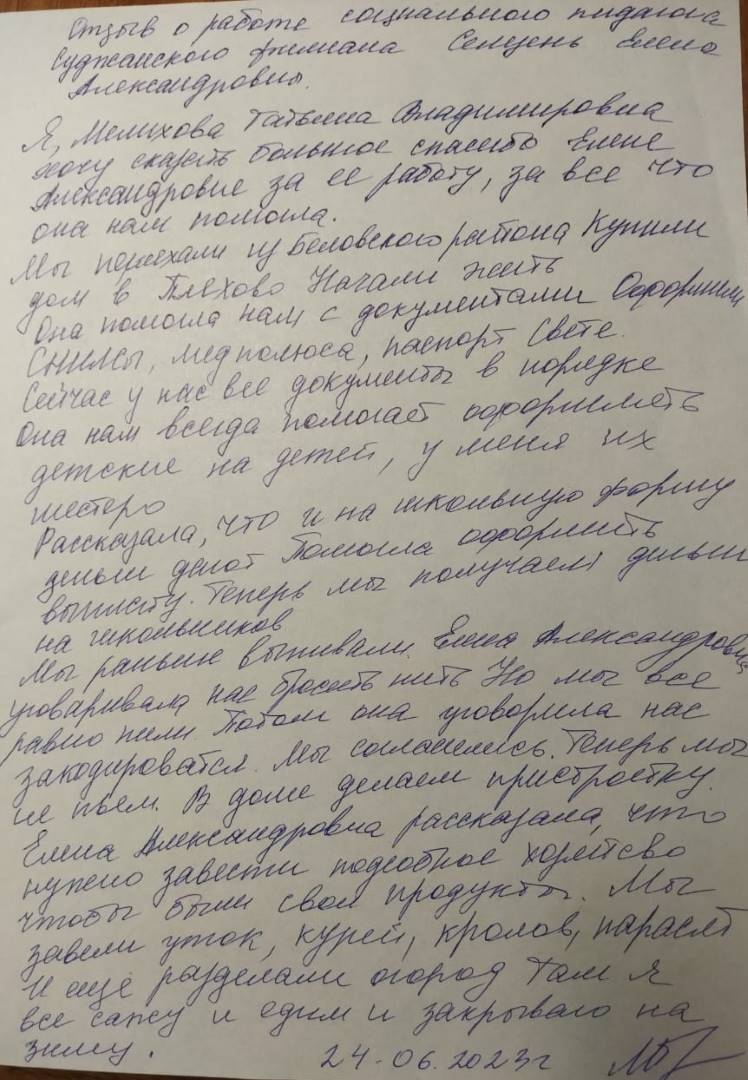 Отзыв о работе социального педагога
Суджанского филиала Селцень Елена
Александровны.
Я, Мелихова Татьяна Владимировна
хочу сказать большое спасибо Елене
Александровне за ее работу, за все что
она нам помогла.
Мы переехали из Беловского района Купили
дом в Плехово Начали жить
Она помогла нам с документами Оформили
СНИЛСы, медполюса, паспорт Свете.
Сейчас у нас все документы в порядке
Она нам всегда помогает оформлять
детские на детей, у меня их
шестеро
Рассказала, что и на школьную форму
деньги дают Помогла оформить
выплату. Теперь мы получаем деньги
на школьников
Мы раньше выпивали. Елена Александровна
уговаривала нас бросить пить Но мы все
равно пили. Потом она уговорила нас
закодироватся. Мы согласились. Теперь мы
не пьем. В доме делаем пристройку.
Елена Александровна рассказала, что
нужно завести подсобное хозяйсво
чтобы были свои продукты. Мы
завели уток, курей, кролов, парасят
И еще разделали огород Там я
все сажу и едим и закрываю на
зиму.
24.06.2023г